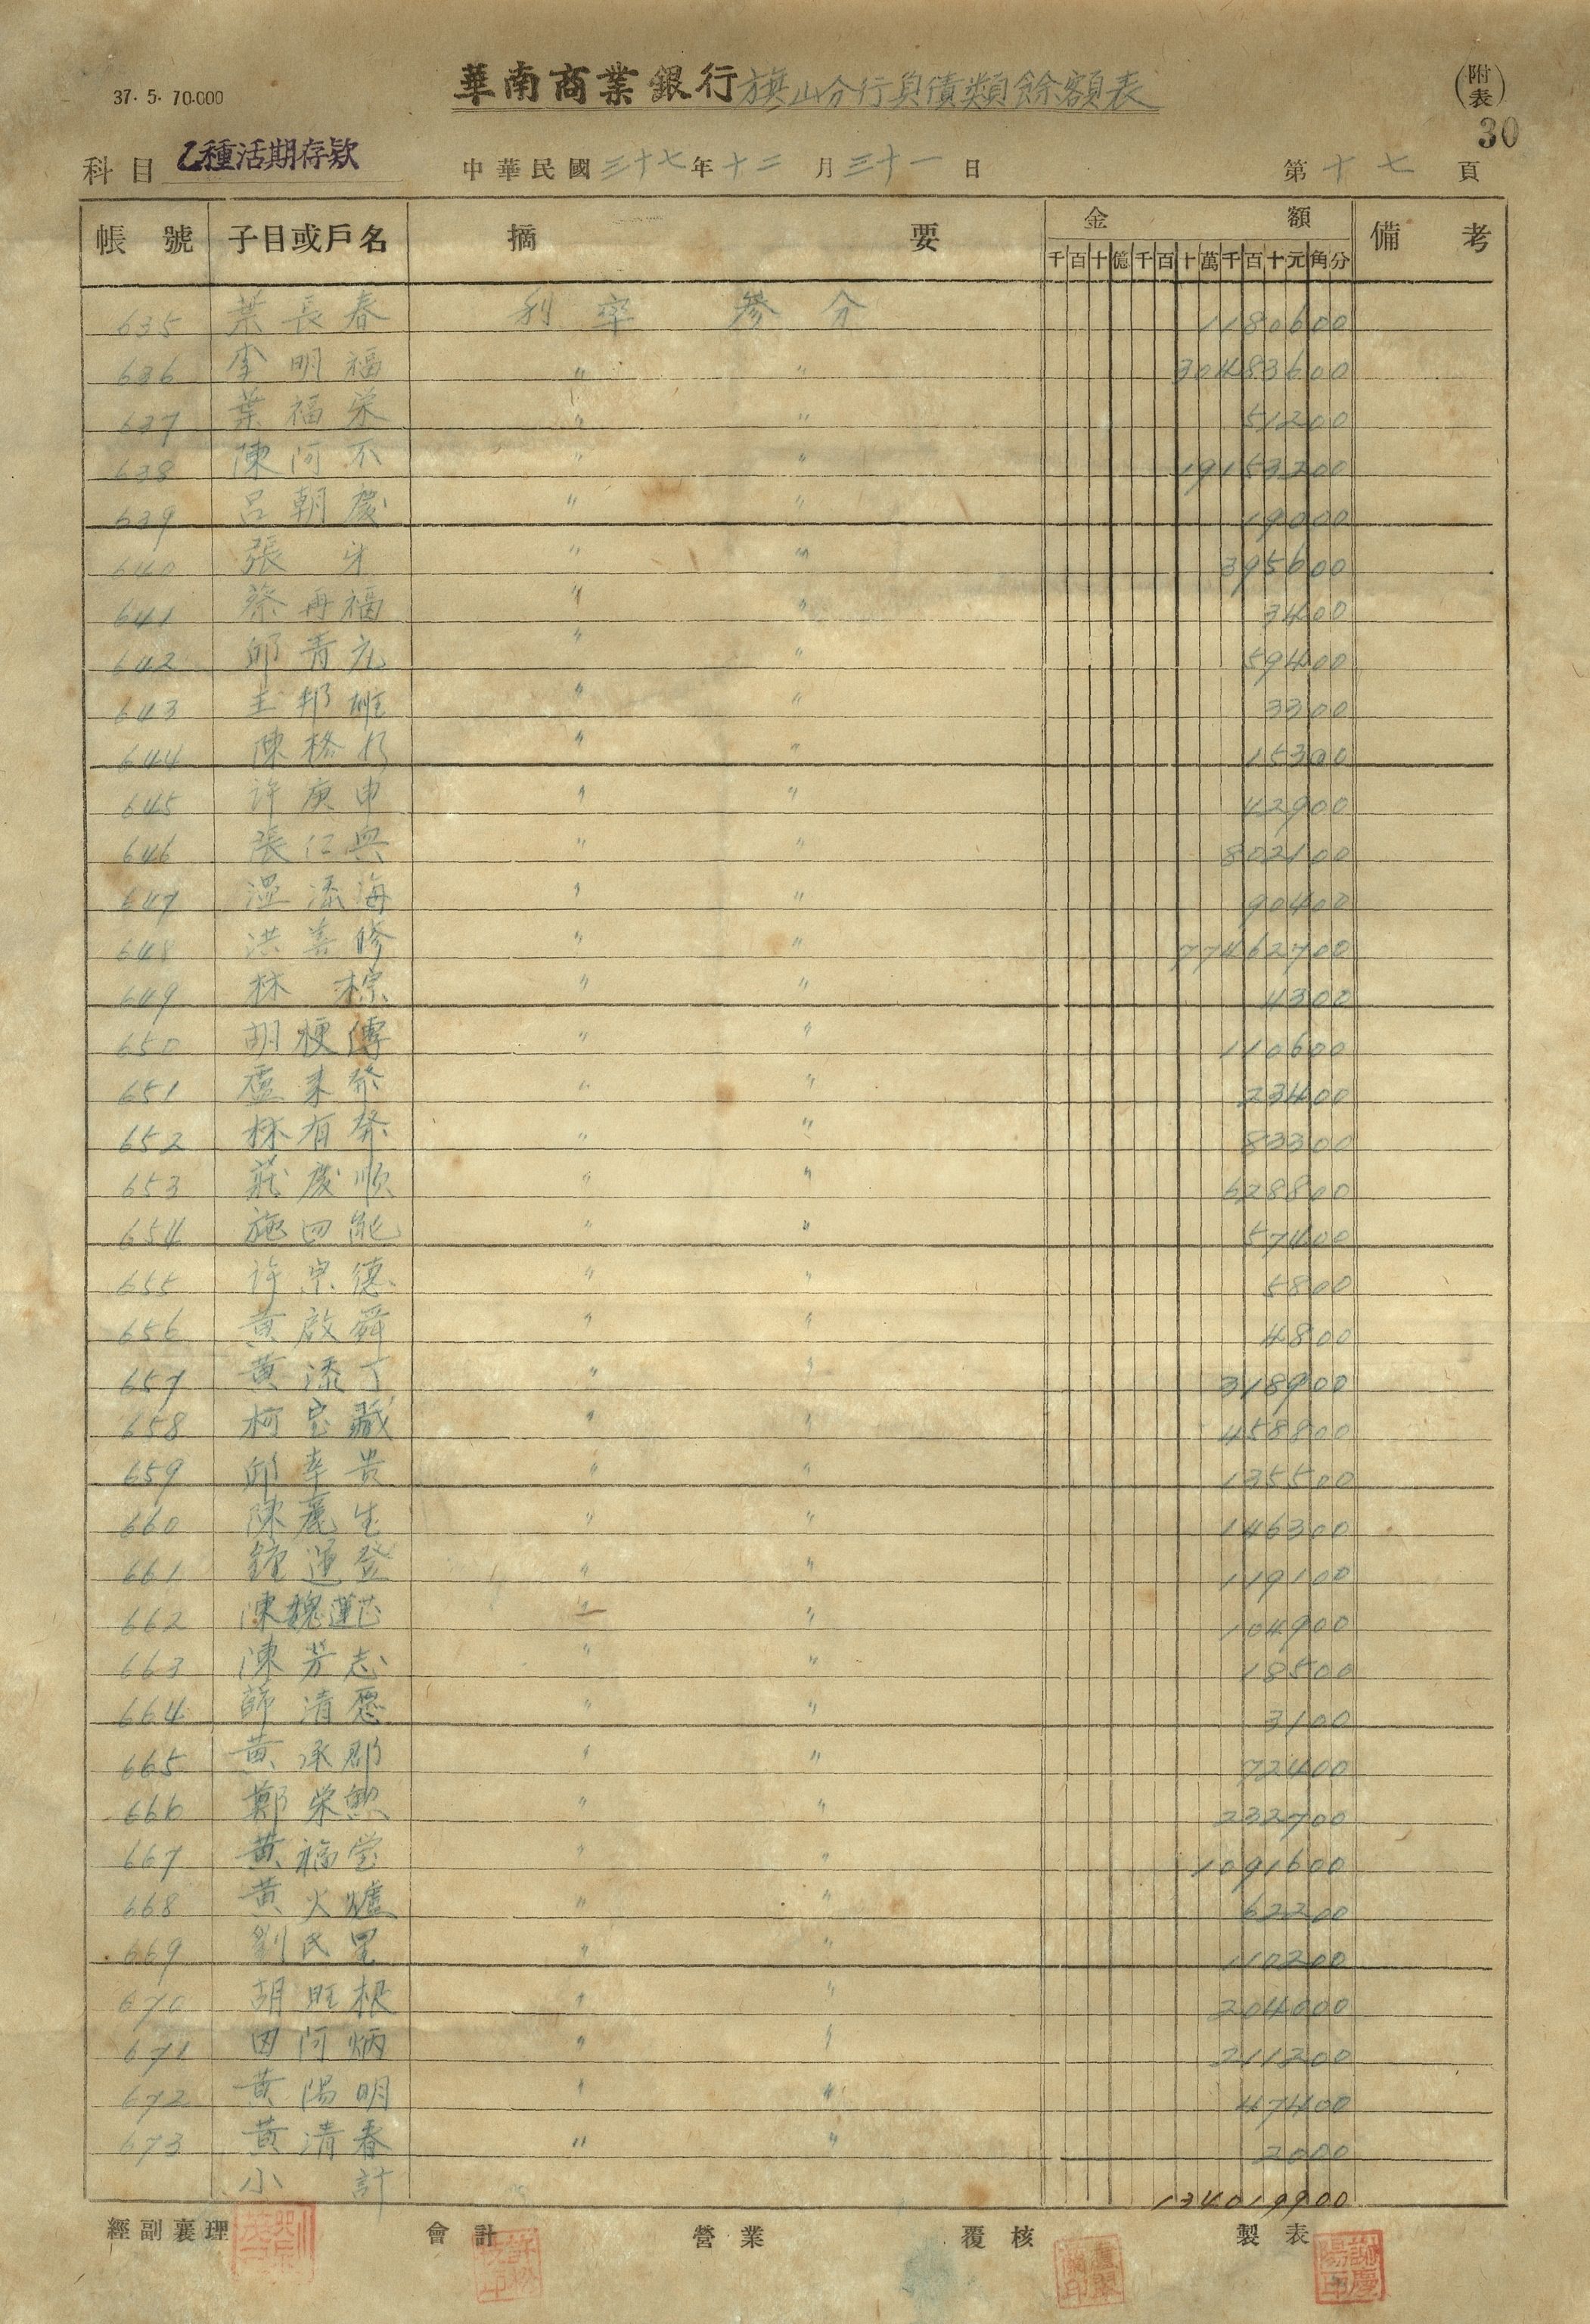 37. 5. 70.000
華南商業銀行旗山分行負債類餘額表
(附表)
30
科目 乙種活期存款 中華民國三十七年十二月三十一日 第十七頁
帳號 子目或戶名 摘要 金額 備考
千百十億千百十萬千百十元角分
635 葉長春 利率 參分 1180600
636 李明福 〃 〃 30483600
637 葉福榮 〃 〃 51200
638 陳阿不 〃 〃 19153200
639 呂朝慶 〃 〃 19000
640 張牙 〃 〃 395600
641 蔡再福 〃 〃 3400
642 邱青 〃 〃 59400
643 王邦 〃 〃 3300
644 陳 〃 〃 15300
645 許庚申 〃 〃 42900
646 張仁興 〃 〃 802100
647 溫添海 〃 〃 90400
648 洪善修 〃 〃 77462700
649 林棕 〃 〃 4300
650 胡梗傳 〃 〃 110600
651 盧來發 〃 〃 23400
652 林有發 〃 〃 83300
653 莊慶順 〃 〃 628800
654 施四能 〃 〃 57400
655 許宗德 〃 〃 5800
656 黃啟舜 〃 〃 4800
657 黃添丁 〃 〃 318900
658 柯宝藏 〃 〃 458800
659 邱幸貴 〃 〃 135500
660 陳麗生 〃 〃 146300
661 鍾運登 〃 〃 119100
662 陳魏蓮芯 〃 〃 104900
663 陳芳志 〃 〃 18500
664 薛清愿 〃 〃 3100
665 黃承郡 〃 〃 72400
666 鄭榮 〃 〃 232700
667 黃福堂 〃 〃 1091600
668 黃火爐 〃 〃 62200
669 劉氏里 〃 〃 110200
670 胡旺根 〃 〃 204000
671 田阿炳 〃 〃 211200
672 黃陽明 〃 〃 47400
673 黃清春 〃 〃 2000
小計 134019900
經副襄理 會計 營業 覆核 製表